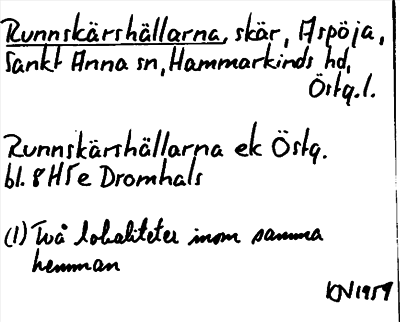 Runnskärshällarna, skär, Aspöja,
Sankt Anna sn, Hammarkinds hd,
Östg.l.
Runnskärshällarna ek Östg.
bl. 8H5e Dromhals
(1) Två lokaliteter inom samma
hemman
KN1959